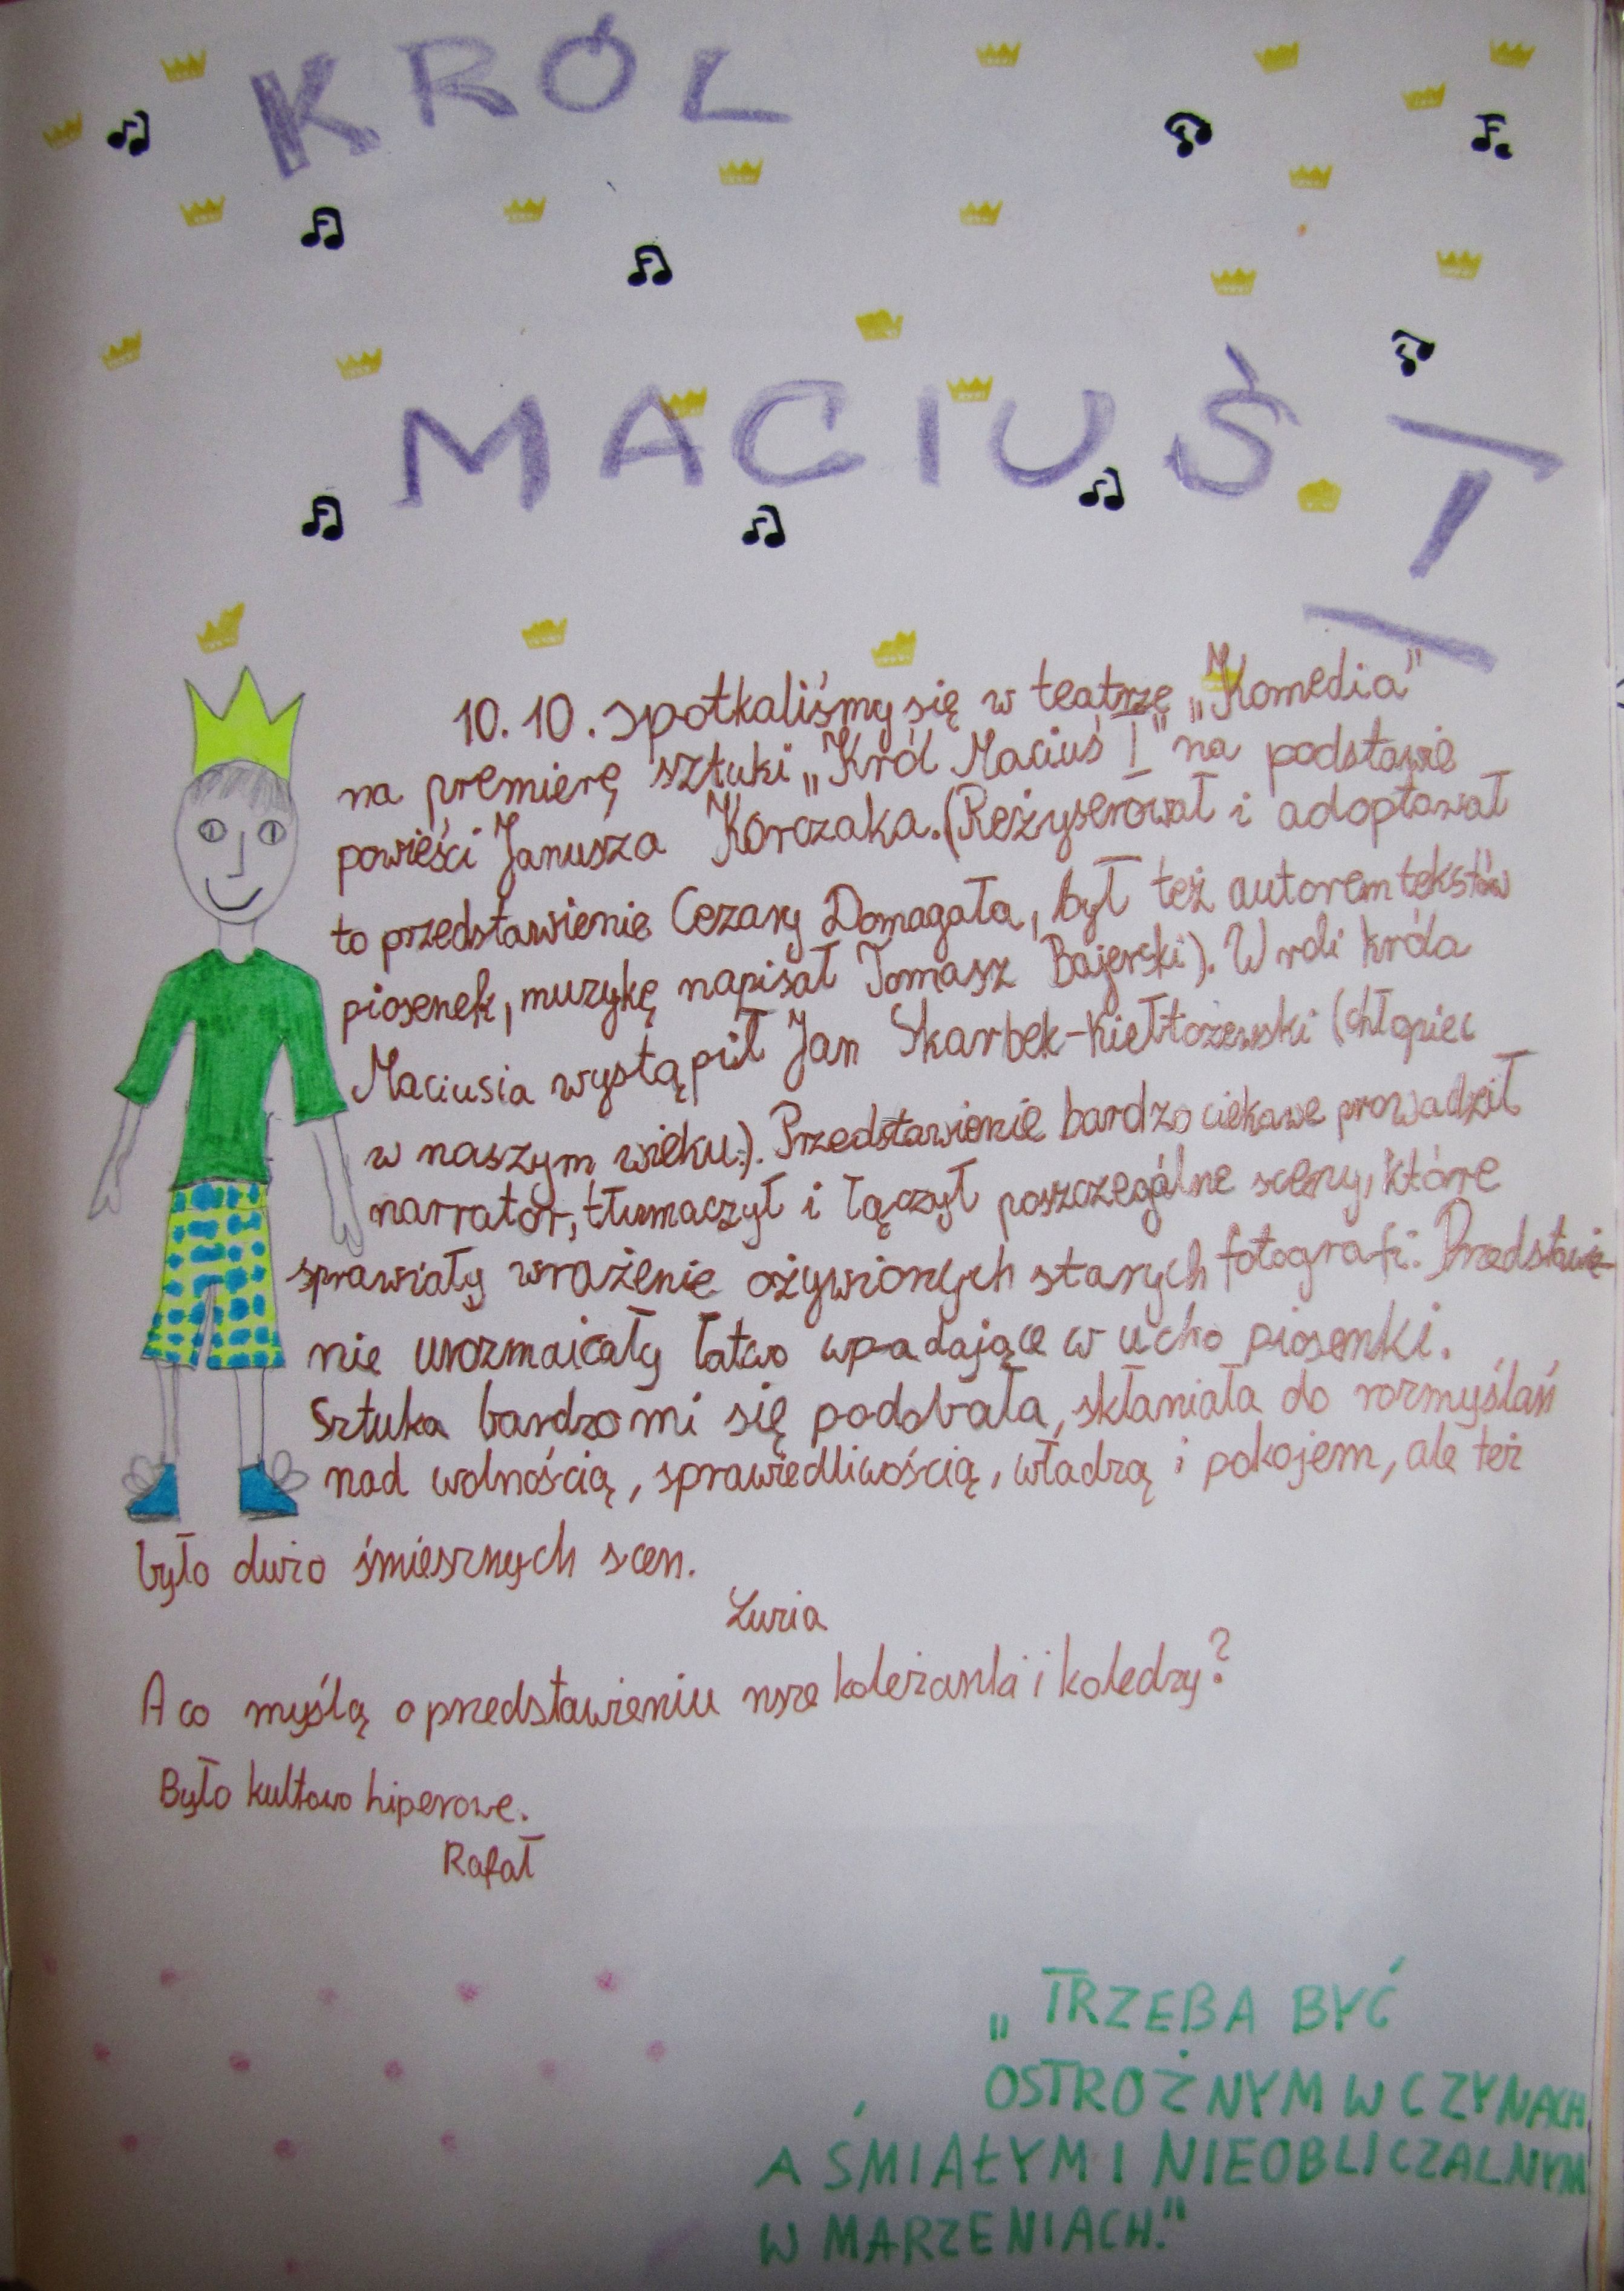 KRÓL
MACIUŚ I
10.10. spotkaliśmy się w teatrze „Komedia"
na premierę sztuki „Król Maciuś I" na podstawie
powieści Janusza Korczaka. (Reżyserował i adoptował
to przedstawienie Cezary Domagała, był też autorem tekstów
piosenek, muzykę napisał Tomasz Bajerski). W roli króla
Maciusia wystąpił Jan Skarbek-Kiełtozewski (chłopiec
w naszym wieku:). Przedstawienie bardzo ciekawe prowadził
narrator, tłumaczył i łączył poszczególne sceny, które
sprawiały wrażenie ożywionych starych fotografi. Przedstawie-
nie urozmaicały łatwo wpadające w ucho piosenki.
Sztuka bardzo mi się podobała, skłaniała do rozmyślań
nad wolnością, sprawiedliwością, władzą i pokojem, ale też
było dużo śmiesznych scen.
Luria
A co myślą o przedstawieniu nsze koleżanki i koledzy?
Było kultowo hiperowe.
Rafał
„TRZEBA BYĆ
OSTROŻNYM W CZYNACH
A ŚMIAŁYM I NIEOBLICZALNYM
W MARZENIACH."